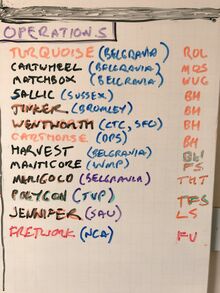 OPERATIONS
TURQUOISE (BELGRAVIA) ROL
CARTWHEEL (BELGRAVIA) MOS
MATCHBOX (BELGRAVIA) WUG
SALLIC (SUSSEX) BH
TINKER (BROMLEY) BH
WENTWORTH (CTC, SFO) BH
CARTHORSE (OPS) BH
HARVEST (BELGRAVIA)
MANTICORE (WMP) FS
MARIGOLD (BELGRAVIA) THT
POLYGON (TVP) TFS
JENNIFER (SAU) LS
FRETWORK (NCA) FU